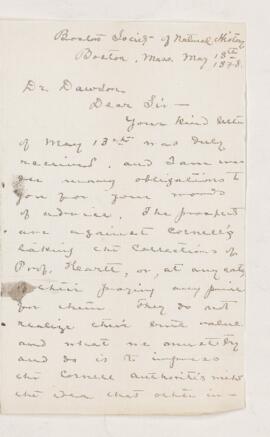 Boston Society of Natural History
Boston, Mass. May 18th
1878.
Dr. Dawson
Dear Sir —
Your kind letter
of May 13th was duly
received, and I am
under many obligations to
you for your words
of advice. The prospects
are against Cornell's
taking the collections of
Prof. Hartt, or, at any rate,
of their paying any price
for them. They do not
realize their true value
and what we must try
and do is to impress
the Cornell authorities with
the idea that other in—